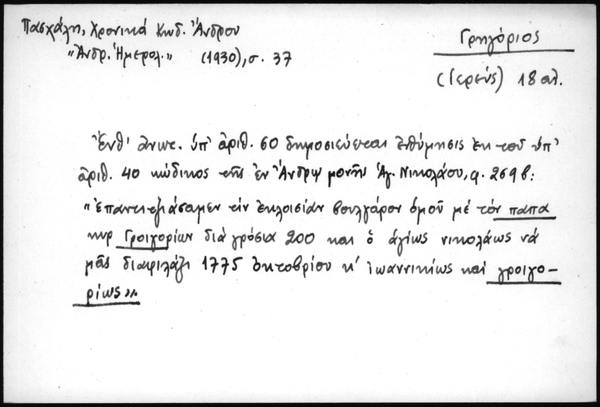 Πασχάλη, Χρονικά Κωδ. Ἄνδρου
"Ἀνδρ. Ἡμερολ." (1930), σ. 37
Γρηγόριος
(ἱερεύς) 18 αἰ.
Ἔνθ' ἀνωτ. ὑπ' ἀριθ. 60 δημοσιεύεται ἐνθύμησις ἐκ τοῦ ὑπ'
ἀριθ. 40 κώδικος τῆς ἐν Ἄνδρῳ μονῆς Ἁγ. Νικολάου, φ. 269β:
"ἐπαντιχιάσαμεν τὶν ἐκλοισίαν βουλγάρον ὁμοῦ μέ τόν παπα
κυρ Γροιγορίων διά γρόσια 200 και ὁ ἁγίως νικολάως νά
μᾶς διαφιλάξι 1775 ὀκτοβρίου κ' ἰωαννικίως καί γροιγο-
ρίως".